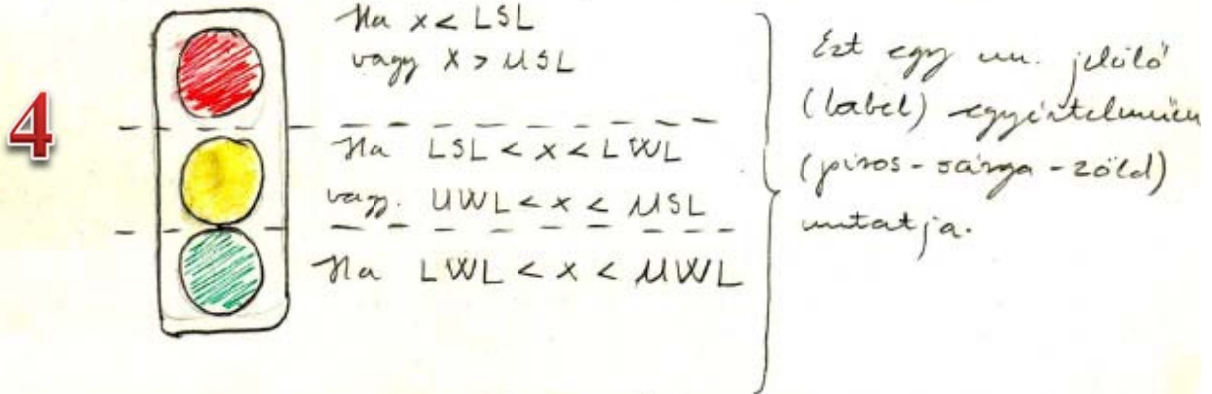 4
Ha x < LSL
vagy x > USL
Ha LSL < x < LWL
vagy. UWL < x < USL
Ha LWL < x < UWL
Ezt egy un. jelölő
(label) egyértelműen
(piros - sárga - zöld)
mutatja.